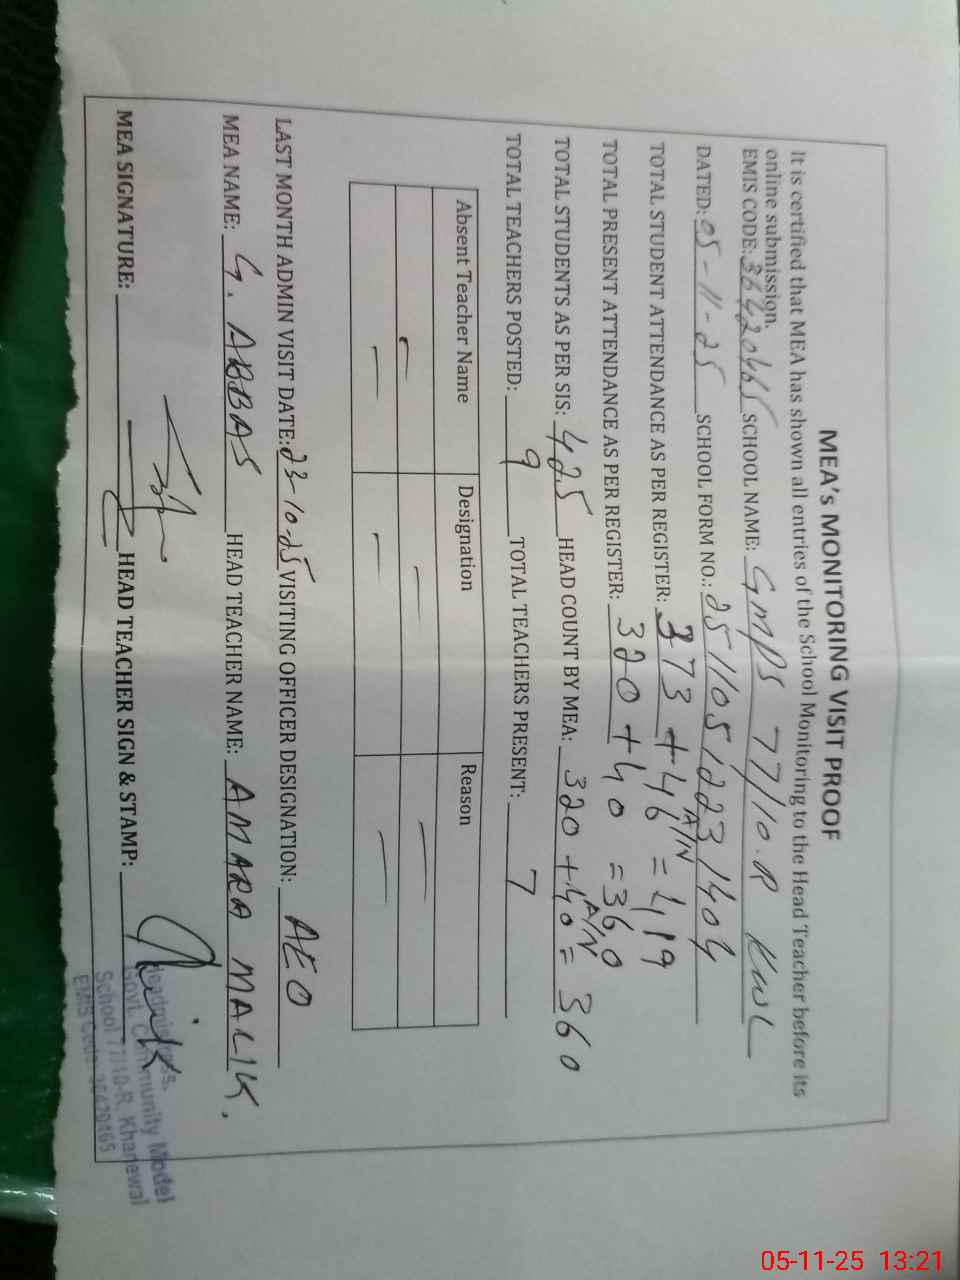 MEA's MONITORING VISIT PROOF
It is certified that MEA has shown all entries of the School Monitoring to the Head Teacher before its
online submission.
EMIS CODE: 36420465 SCHOOL NAME: GMPS 77/10.R KWL
DATED: 05-11-25 SCHOOL FORM NO.: 251105/223/404
TOTAL STUDENT ATTENDANCE AS PER REGISTER: 373 + 46 A/N = 419
TOTAL PRESENT ATTENDANCE AS PER REGISTER: 320 + 40 = 360
TOTAL STUDENTS AS PER SIS: 425 HEAD COUNT BY MEA: 320 + 40 A/N = 360
TOTAL TEACHERS POSTED: 9 TOTAL TEACHERS PRESENT: 7
Absent Teacher Name Designation Reason
— — —
— — —
LAST MONTH ADMIN VISIT DATE: 23-10-25 VISITING OFFICER DESIGNATION: AEO
MEA NAME: G. ABBAS HEAD TEACHER NAME: AMARA MALIK.
MEA SIGNATURE: HEAD TEACHER SIGN & STAMP:
Headmistress,
Govt. Community Model
School 77/10-R, Khanewal
EMIS Code: 36420465
05-11-25 13:21